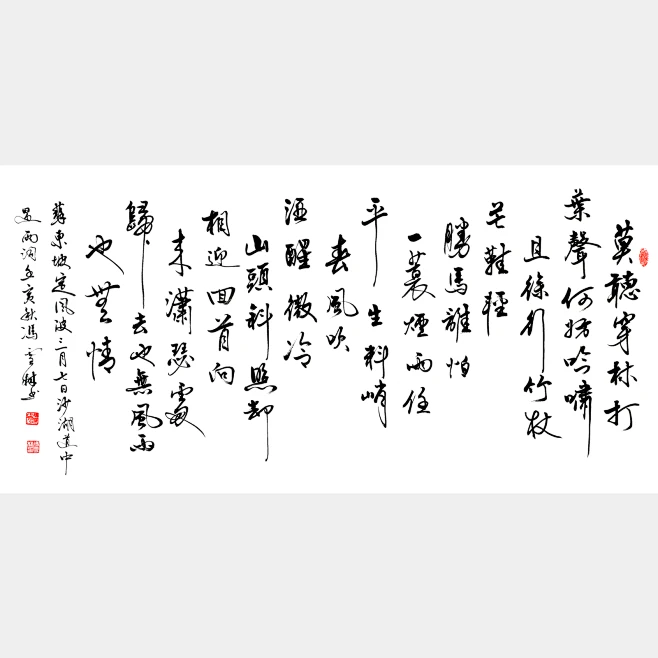 莫聽穿林打
葉聲何妨吟嘯
且徐行竹杖
芒鞋輕
勝馬誰怕
一蓑煙雨任
平生料峭
春風吹
酒醒微冷
山頭斜照却
相迎回首向
来瀟瑟處
歸去也無風雨
也無情
蘇東坡定風波三月七日沙湖道中
遇雨詞己亥秋馮雪书